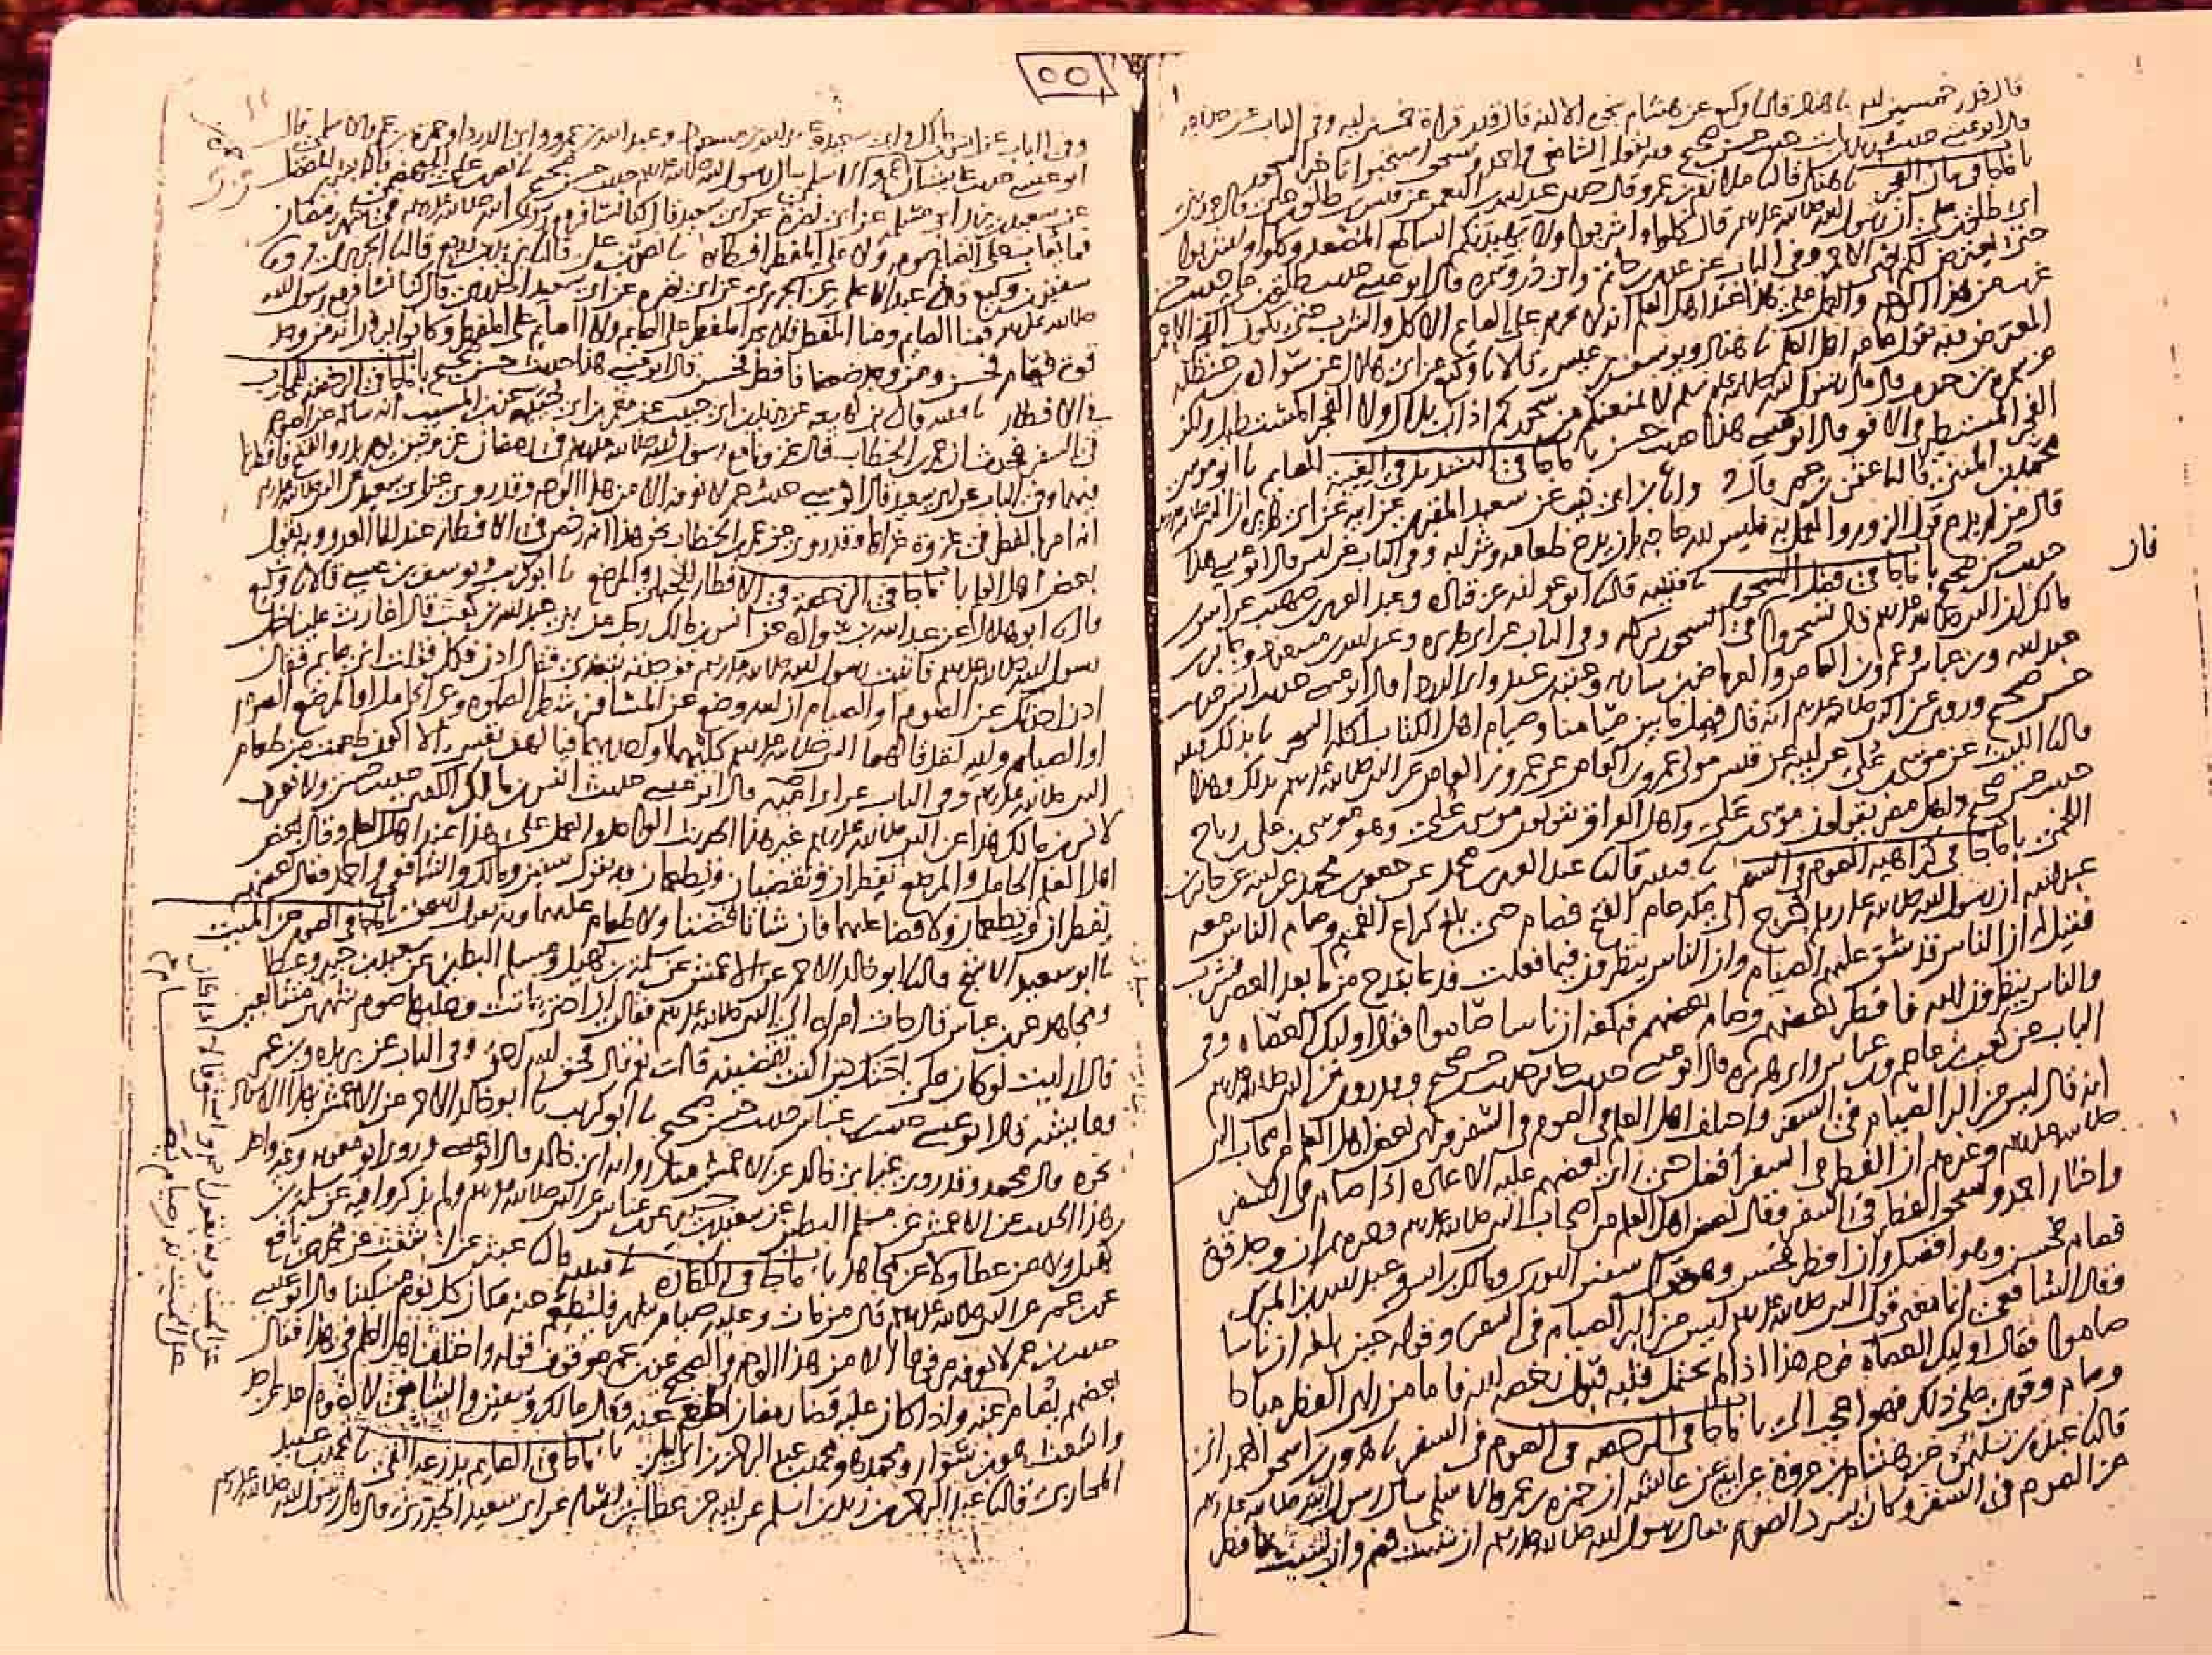 ٥٥
قال قدر خمسين اية نا هناد قال نا وكيع عن هشام بنحوه الا انه قال قدر قراءة خمسين اية وفي الباب عن حذيفة
قال ابو عيسى حديث زيد بن ثابت حديث حسن صحيح وبه يقول الشافعي واحمد واسحق استحبوا تاخير السحور
ما جا في بيان الفجر نا هناد قال نا ملازم بن عمرو قال حدثني عبد الله بن النعمن عن قيس بن طلق
ابي طلق بن علي ان رسول الله صلى الله عليه وسلم قال كلوا واشربوا ولا يهيدنكم الساطع المصعد وكلوا واشربوا
حتى يعترض لكم الاحمر وفي الباب عن عدي بن حاتم وابي ذر وسمرة قال ابو عيسى حديث طلق بن علي حديث حسن
غريب من هذا الوجه والعمل على هذا عند اهل العلم انه لا يحرم على الصايم الاكل والشرب حتى يكون الفجر الاحمر
المعترض وبه يقول عامة اهل العلم نا هناد ويوسف بن عيسى قالا نا وكيع عن ابي هلال عن سوادة بن حنظلة
عن سمرة بن جندب قال قال رسول الله صلى الله عليه وسلم لا يمنعنكم من سحوركم اذان بلال ولا الفجر المستطيل ولكن
الفجر المستطير في الافق قال ابو عيسى هذا حديث حسن باب ما جا في التشديد في الغيبة للصايم نا ابو موسى
محمد بن المثنى قال نا عثمن بن عمر قال وانا ابن ابي ذئب عن سعيد المقبري عن ابيه عن ابي هريرة ان النبي صلى الله عليه وسلم
قال من لم يدع قول الزور والعمل به فليس لله حاجة بان يدع طعامه وشرابه وفي الباب عن انس قال ابو عيسى هذا
حديث حسن صحيح باب ما جا في فضل السحور نا قتيبة قال نا ابو عوانة عن قتادة وعبد العزيز بن صهيب عن انس بن
مالك ان النبي صلى الله عليه وسلم قال تسحروا فان في السحور بركة وفي الباب عن ابي هريرة وعبد الله بن مسعود وجابر بن
عبد الله وابن عباس وعمرو بن العاص والعرباض بن سارية وعتبة بن عبد وابي الدرداء قال ابو عيسى حديث انس حديث
حسن صحيح وروي عن النبي صلى الله عليه وسلم انه قال فصل ما بين صيامنا وصيام اهل الكتاب اكلة السحر نا بذلك قتيبة
قال نا الليث عن موسى بن علي عن ابيه عن ابي قيس مولى عمرو بن العاص عن عمرو بن العاص عن النبي صلى الله عليه وسلم بذلك وهذا
حديث حسن صحيح واهل مصر يقولون موسى بن علي واهل العراق يقولون موسى بن علي وهو موسى بن علي بن رباح
اللخمي باب ما جا في كراهية الصوم في السفر نا قتيبة قال نا عبد العزيز بن محمد عن جعفر بن محمد عن ابيه عن جابر بن
عبد الله ان رسول الله صلى الله عليه وسلم خرج الى مكة عام الفتح فصام حتى بلغ كراع الغميم وصام الناس معه
فقيل له ان الناس قد شق عليهم الصيام وان الناس ينظرون فيما فعلت فدعا بقدح من ما بعد العصر فشرب
والناس ينظرون اليه فافطر بعضهم وصام بعضهم فبلغه ان ناسا صاموا فقال اوليك العصاة وفي
الباب عن كعب بن عاصم وابن عباس وابي هريرة قال ابو عيسى حديث جابر حديث حسن صحيح وقد روي عن النبي صلى الله عليه وسلم
انه قال ليس من البر الصيام في السفر واختلف اهل العلم في الصوم في السفر فراى بعض اهل العلم من اصحاب النبي
صلى الله عليه وسلم وغيرهم ان الفطر في السفر افضل حتى راى بعضهم عليه الاعادة اذا صام في السفر
واختار احمد واسحق الفطر في السفر وقال بعض اهل العلم من اصحاب النبي صلى الله عليه وسلم وغيرهم ان وجد قوة
فصام فحسن وهو افضل وان افطر فحسن وهو قول سفين الثوري ومالك بن انس وعبد الله بن المبرك
فقال الشافعي انما معنى قول النبي صلى الله عليه وسلم ليس من البر الصيام في السفر وقوله حين بلغه ان ناسا
صاموا فقال اوليك العصاة فوجه هذا اذا لم يحتمل قلبه قبول رخصة الله فاما من راى الفطر مباحا
وصام وقوي على ذلك فهو اعجب الي باب ما جا في الرخصة في الصوم في السفر نا هرون بن اسحق الهمداني
قال نا عبدة بن سليمن عن هشام بن عروة عن ابيه عن عائشة ان حمزة بن عمرو الاسلمي سال رسول الله صلى الله عليه وسلم
عن الصوم في السفر وكان يسرد الصوم فقال رسول الله صلى الله عليه وسلم ان شئت فصم وان شئت فافطر
فان
وفي الباب عن انس بن مالك وابي سعيد وعبد الله بن مسعود وعبد الله بن عمرو وابي الدرداء وحمزة بن عمرو الاسلمي قال
ابو عيسى حديث عايشة ان حمزة بن عمرو الاسلمي سال رسول الله صلى الله عليه وسلم حديث حسن صحيح نا نصر بن علي الجهضمي قال نا بشر بن المفضل
عن سعيد بن يزيد ابي مسلمة عن ابي نضرة عن ابي سعيد قال كنا نسافر مع رسول الله صلى الله عليه وسلم في شهر رمضان
فما يعاب على الصايم صومه ولا على المفطر افطاره نا نصر بن علي قال نا يزيد بن زريع قال نا الجريري ح ونا
سفين بن وكيع قال نا عبد الاعلى عن الجريري عن ابي نضرة عن ابي سعيد الخدري قال كنا نسافر مع رسول الله
صلى الله عليه وسلم فمنا الصايم ومنا المفطر فلا يجد المفطر على الصايم ولا الصايم على المفطر وكانوا يرون انه من وجد
قوة فصام فحسن ومن وجد ضعفا فافطر فحسن قال ابو عيسى هذا حديث حسن صحيح باب ما جا في الرخصة للمحارب
في الافطار نا قتيبة قال نا ابن لهيعة عن يزيد بن ابي حبيب عن معمر بن ابي حبيبة عن ابن المسيب انه ساله عن الصوم
في السفر فحدث ان عمر بن الخطاب قال غزونا مع رسول الله صلى الله عليه وسلم في رمضان غزوتين يوم بدر والفتح فافطرنا
فيهما وفي الباب عن ابي سعيد قال ابو عيسى حديث عمر لا نعرفه الا من هذا الوجه وقد روي عن ابي سعيد عن النبي صلى الله عليه وسلم
انه امر بالفطر في غزوة غزاها وقد روي عن عمر بن الخطاب نحو هذا انه رخص في الافطار عند لقا العدو وبه يقول
بعض اهل العلم باب ما جا في الرخصة في الافطار للحبلى والمرضع نا ابو كريب ويوسف بن عيسى قالا نا وكيع
قال نا ابو هلال عن عبد الله بن سوادة عن انس بن مالك رجل من بني عبد الله بن كعب قال اغارت علينا خيل
رسول الله صلى الله عليه وسلم فاتيت رسول الله صلى الله عليه وسلم فوجدته يتغدى فقال ادن فكل فقلت اني صايم فقال
ادن احدثك عن الصوم او الصيام ان الله وضع عن المسافر شطر الصلوة وعن الحامل او المرضع الصوم
او الصيام والله لقد قالهما النبي صلى الله عليه وسلم كلتيهما او احدهما فيا لهف نفسي ان لا اكون طعمت من طعام
النبي صلى الله عليه وسلم وفي الباب عن ابي امية قال ابو عيسى حديث انس بن مالك الكعبي حديث حسن ولا نعرف
لانس بن مالك هذا عن النبي صلى الله عليه وسلم غير هذا الحديث الواحد والعمل على هذا عند اهل العلم وقال بعض
اهل العلم الحامل والمرضع يفطران ويقضيان ويطعمان وبه يقول سفين ومالك والشافعي واحمد وقال بعضهم
يفطران ويطعمان ولا قضا عليهما فان شاتا قضتا ولا طعام عليهما وبه يقول اسحق باب ما جا في الصوم عن الميت
نا ابو سعيد الاشج قال نا ابو خالد الاحمر عن الاعمش عن سلمة بن كهيل ومسلم البطين عن سعيد بن جبير وعطا
ومجاهد عن ابن عباس قال جات امراة الى النبي صلى الله عليه وسلم فقالت ان اختي ماتت وعليها صوم شهرين متتابعين
قال ارايت لو كان على اختك دين اكنت تقضينه قالت نعم قال فحق الله احق وفي الباب عن بريدة وابن عمر
وعايشة قال ابو عيسى حديث ابن عباس حديث حسن صحيح نا ابو كريب نا ابو خالد الاحمر عن الاعمش بهذا الاسناد
نحوه قال محمد وقد روى غير ابي خالد عن الاعمش مثل رواية ابي خالد قال ابو عيسى وروى ابو معوية وغير واحد
هذا الحديث عن الاعمش عن مسلم البطين عن سعيد بن جبير عن ابن عباس عن النبي صلى الله عليه وسلم ولم يذكروا فيه عن سلمة بن
كهيل ولا عن عطا ولا عن مجاهد باب ما جا في الكفارة نا قتيبة قال نا عبثر عن اشعث عن محمد عن نافع
عن ابن عمر عن النبي صلى الله عليه وسلم قال من مات وعليه صيام شهر فليطعم عنه مكان كل يوم مسكينا قال ابو عيسى
حديث ابن عمر لا نعرفه مرفوعا الا من هذا الوجه والصحيح عن ابن عمر موقوف قوله واختلف اهل العلم في هذا فقال
بعضهم يصام عنه واذا كان عليه قضا رمضان اطعم عنه وقال مالك وسفين والشافعي لا يصوم احد عن احد
واشعث هو ابن سوار ومحمد هو محمد بن عبد الرحمن بن ابي ليلى باب ما جا في الصايم يذرعه القي نا محمد بن عبيد
المحاربي قال نا عبد الرحمن بن زيد بن اسلم عن ابيه عن عطا بن يسار عن ابي سعيد الخدري قال قال رسول الله صلى الله عليه وسلم